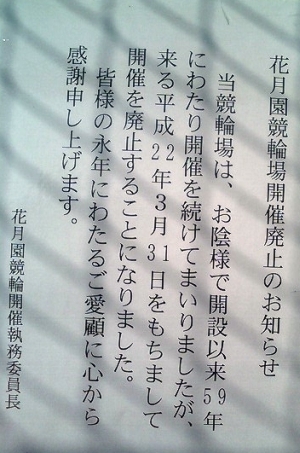 花月園競輪場開催廃止のお知らせ
当競輪場は、お陰様で開設以来59年
にわたり開催を続けてまいりましたが、
来る平成22年3月31日をもちまして
開催を廃止することになりました。
皆様の永年にわたるご愛顧に心から
感謝申し上げます。
花月園競輪開催執務委員長